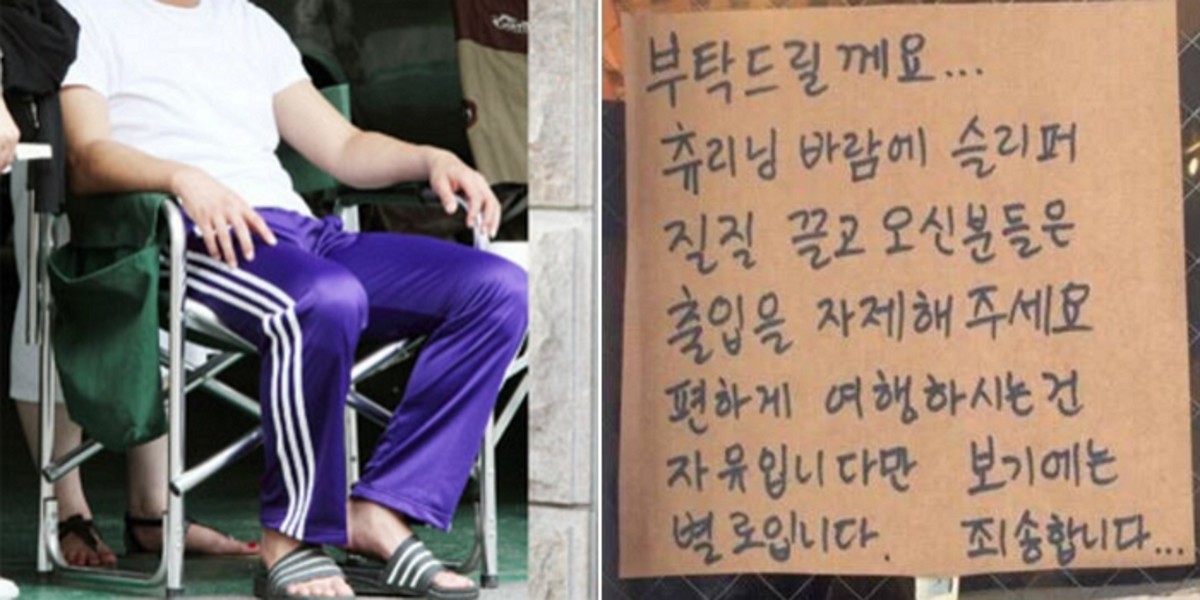 부탁드릴께요...
츄리닝 바람에 슬리퍼
질질 끌고 오신분들은
출입을 자제해 주세요
편하게 여행하시는건
자유입니다만 보기에는
별로입니다. 죄송합니다...